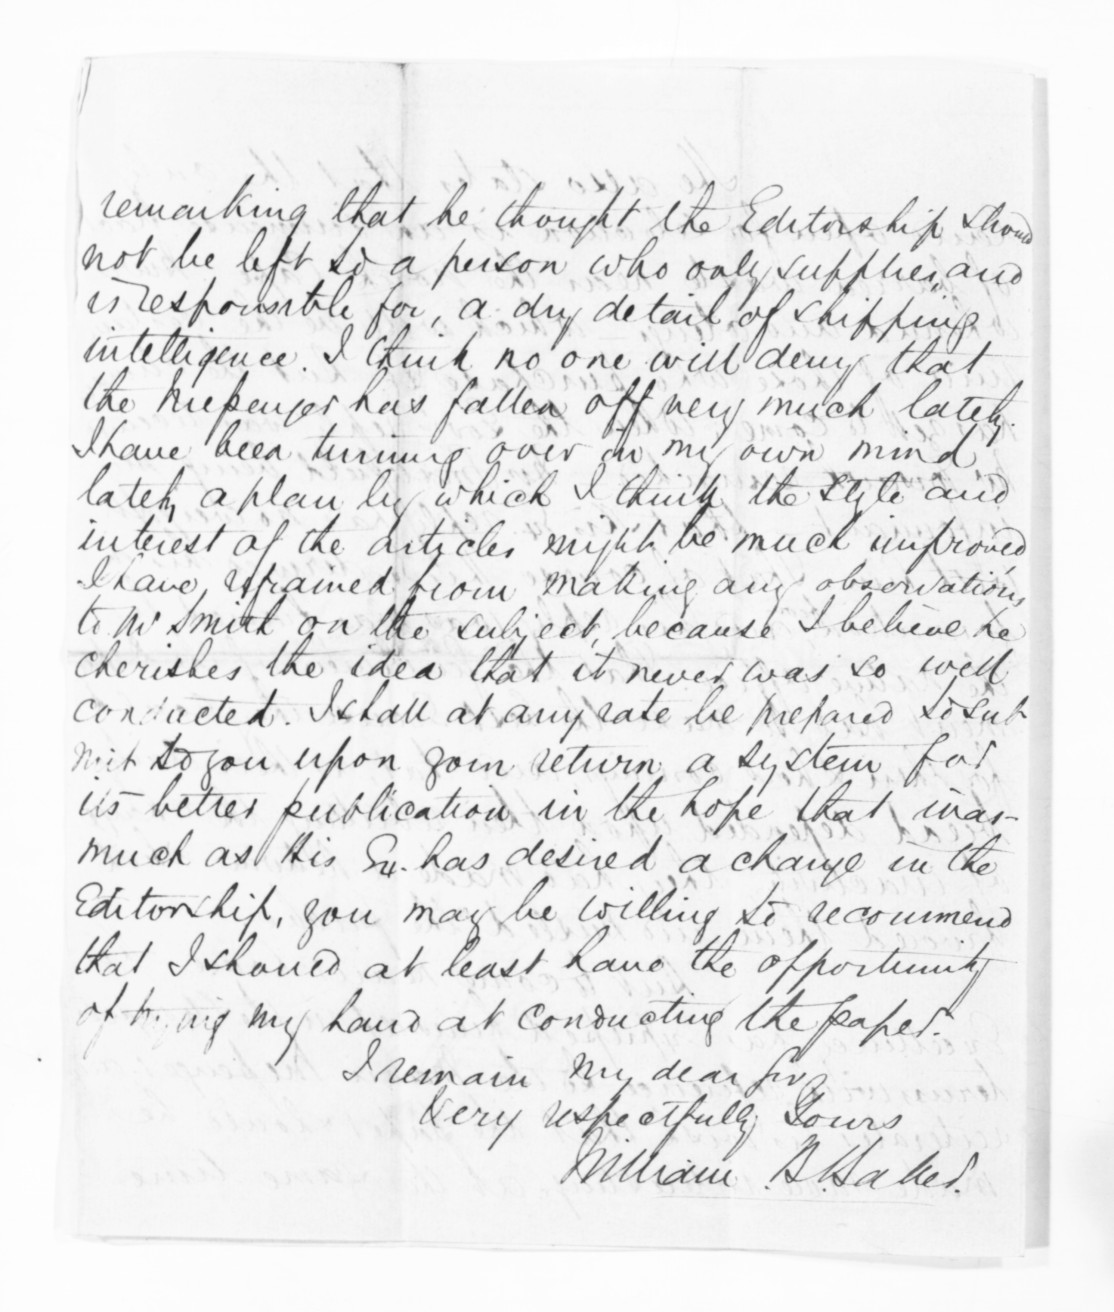 remarking that he thought the Editorship should
not be left to a person who only supplies, and
is responsible for, a dry detail of shipping
intelligence. I think no one will deny that
the Messenger has fallen off very much lately.
I have been turning over in my own mind
lately a plan by which I think the style and
interest of the articles might be much improved
I have refrained from making any observations
to Mr Smith on the subject, because I believe he
cherishes the idea that it never was so well
conducted. I shall at any rate be prepared to sub
mit to you upon your return a system for
its better publication in the hope that inas-
much as His Ex. has desired a change in the
Editorship, you may be willing to recommend
that I should at least have the opportunity
of trying my hand at conducting the paper.
I remain My dear Sir
Very respectfully Yours
William B. Baker.